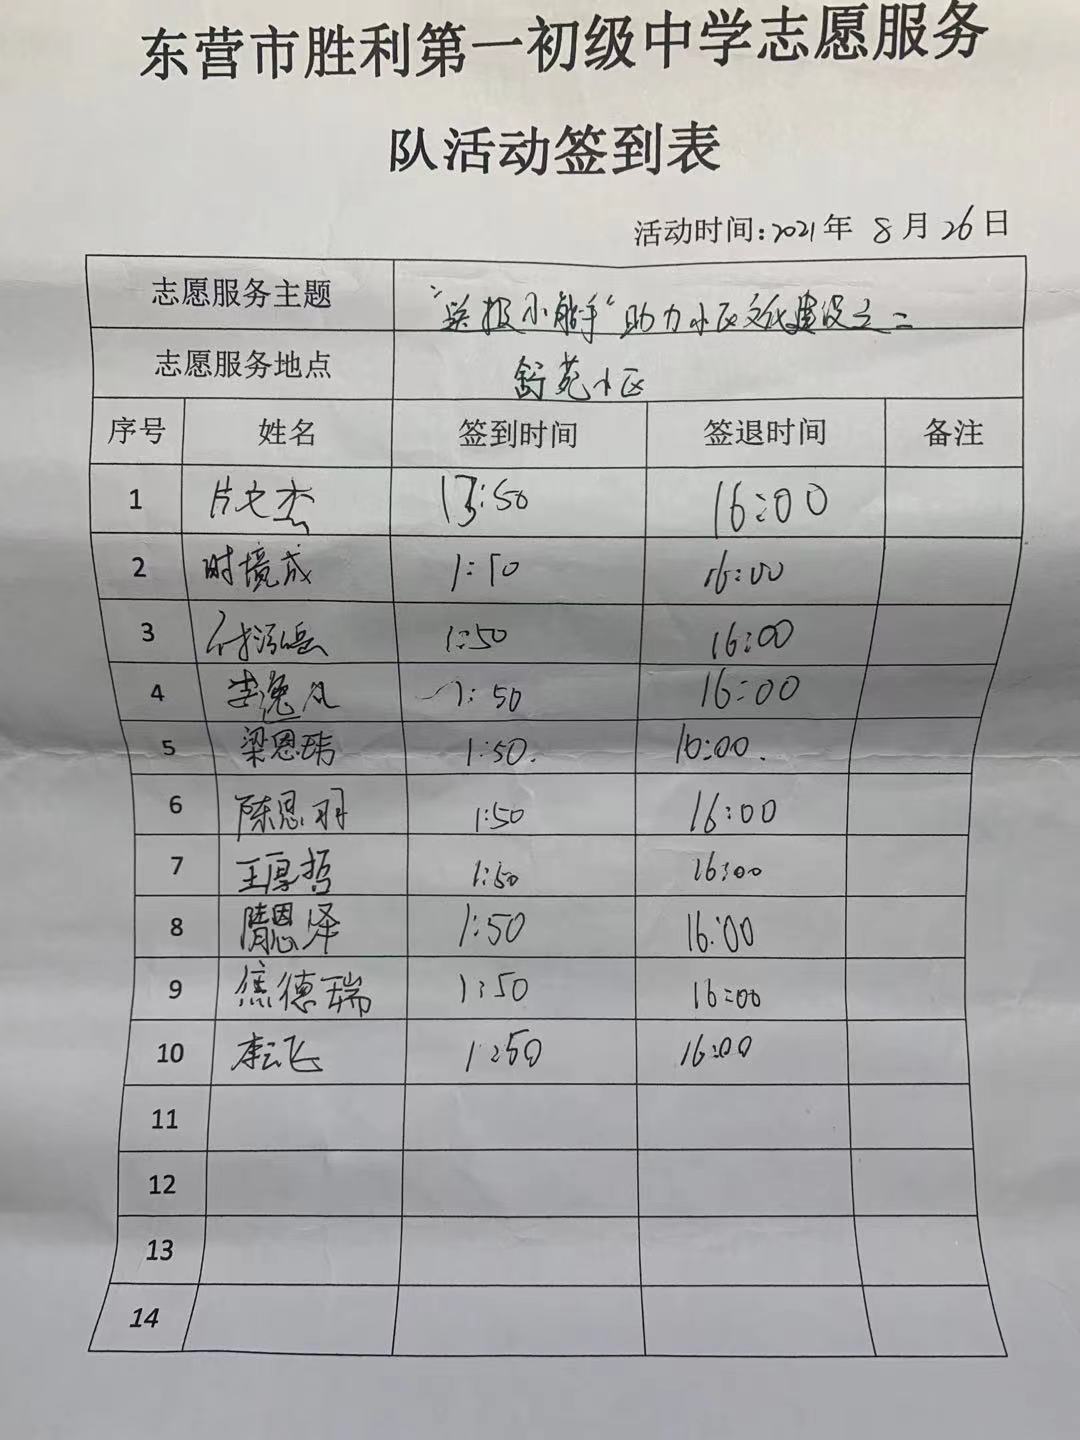 东营市胜利第一初级中学志愿服务
队活动签到表
活动时间:2021年 8月26日
志愿服务主题 "送报小能手"助力小区文化建设之二
志愿服务地点 舒苑小区
序号 姓名 签到时间 签退时间 备注
1 杰 13:50 16:00
2 时境成 1:50 16:00
3 1:50 16:00
4 李逸凡 1:50 16:00
5 梁恩玮 1:50. 16:00.
6 陈思羽 1:50 16:00
7 王厚哲 1:50 16:00
8 隋恩泽 1:50 16:00
9 焦德瑞 1:50 16:00
10 李云飞 1:50 16:00
11
12
13
14